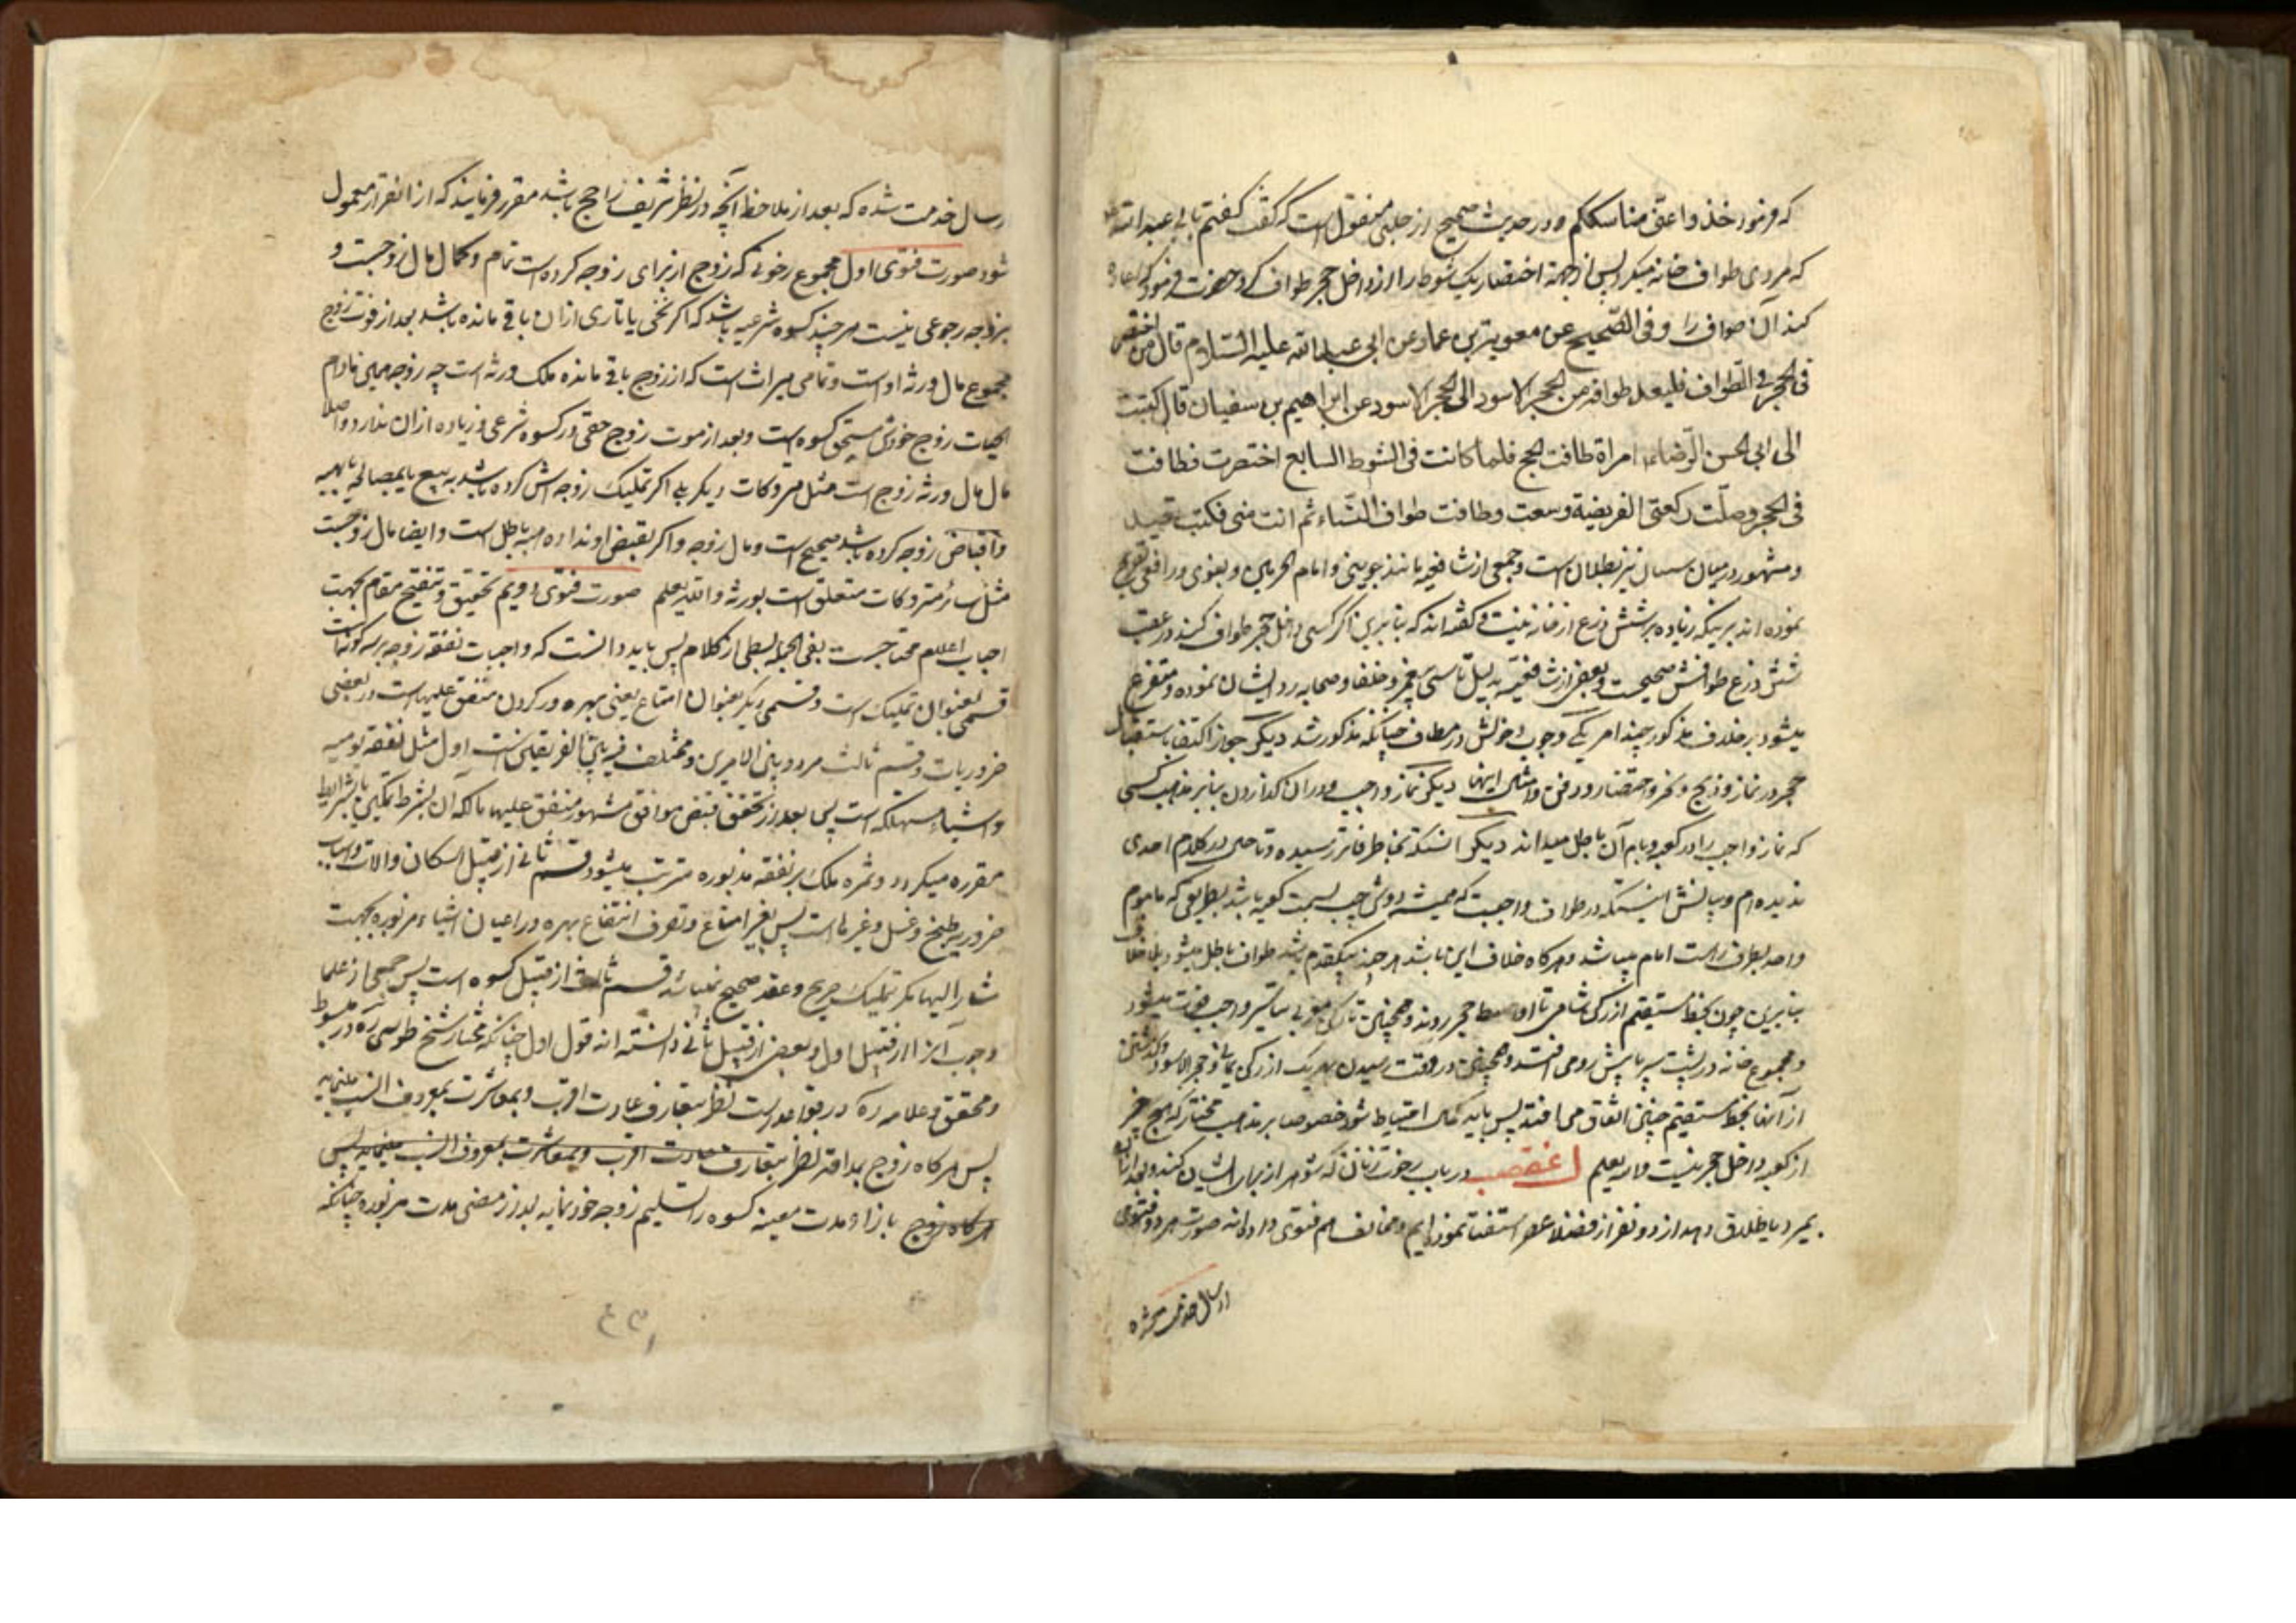 که فرمود خذوا عنی مناسککم و در حدیث صحیح از حلبی منقول است که گفت گفتم بابی عبدالله
که مردی طواف خانه میکرد پس از جهة اختصار یک شوط را از داخل حجر طواف کرد حضرت فرمود که اعاده
کند آن طواف را و فی الصّحیح عن معویة بن عمار عن ابی عبدالله علیه السّلام قال من اختصر
فی الحجر فی الطّواف فلیعد طوافه من الحجر الاسود الی الحجر الاسود عن ابراهیم بن سفیان قال کتبت
الی ابی الحسن الرّضا امراة طافت الحج فلما کانت فی الشوط السابع اختصرت فطافت
فی الحجر وصلّت رکعتی الفریضة وسعت وطافت طواف النساء ثم اتت منی فکتب یعید
و مشهور در میان نیز بطلان است و جمعی از شافعیه مانند جوینی و امام الحرمین و بغوی و رافعی تصریح
نموده اند بر اینکه زیاده بر شش ذرع از خانه نیست و گفته اند که بنابرین اگر کسی داخل حجر طواف کند در عقب
شش ذرع طوافش صحیحست و بعضی از شافعیه بدلیل تاسی پیغمبر و خلفا و صحابه رد ایشان نموده و متفرع
میشود بر خلاف مذکور چند امر یکی وجوب دخولش در مطاف چنانکه مذکور شد دیگر جواز اکتفا باستقبال
حجر در نماز و ذبح و نحر و احتضار و دفن و امثال اینها دیگر نماز واجب در آن گذاردن بنابر مذهب کسی
که نماز واجب را در کعبه و بام آن باطل میداند دیگر آنستکه بخاطر فاتر رسیده و تا حال در کلام احدی
ندیده ام و بیانش اینستکه در طواف واجبست که همیشه دوش چپ بسمت کعبه باشد بطریقی که ماموم
واحد بطرف راست امام میباشد و هرگاه خلاف این باشد هر چند یکقدم باشد طواف باطل میشود بلا خلاف
بنابرین چون بخط مستقیم از رکن شامی تا اواسط حجر روند و همچنین تا رکن مغربی واجب فوت میشود
و مجموع خانه در پشت سر یا پیش رو می افتد و همچنین در وقت رسیدن بهر یک از رکن یمانی و حجر الاسود و گذشتن
از آنها بخط مستقیم چنین اتفاق می افتد پس باید کمال احتیاط شود خصوصا بر مذهب مختار که هیچ جزء
از کعبه داخل حجر نیست والله یعلم در باب رخوت زنان که شوهر از برای ایشان کند و بعد از آن
بمیرد یا طلاق دهد از دو نفر از فضلاء عصر استفتا نموده ایم و مخالف هم فتوی داده اند صورت هر دو فتوی
ارسال خدمت شده
رسال خدمت شده که بعد از ملاحظه آنچه در نظر شریف راجح باشد مقرر فرمایند که از آنقرار معمول
شود صورت فتوی اول مجموع رخوتی که زوج از برای زوجه کرده است تمام و کمال مال زوجست و
بزوجه رجوعی نیست هر چند کسوه شرعیه باشد که اگر نخی یا تاری از آن باقی مانده باشد بعد از فوت زوج
مجموع مال ورثه اوست و تمامی میراث است که از زوج باقی مانده ملک ورثه است چه زوجه همین مادام
الحیات زوج خودش مستحق کسوه است و بعد از موت زوج حقی در کسوه شرعی و زیاده از آن ندارد و اصلا
مال مال ورثه زوج است مثل متروکات دیگر بلی اگر تملیک زوجه اش کرده باشد به بیع یا بمصالحه یا بهبه
و اقباض زوجه کرده باشد صحیح است و مال زوجه و اگر بقبض او نداده هبه باطل است و ایضا مال زوجست
مثل سائر متروکات متعلق است بورثه والله یعلم صورت فتوی دویم تحقیق و تنقیح مقام بجهت
احباب اعلام محتاجست بفی الجمله بسطی از کلام پس باید دانست که واجبات نفقه زوجه بر سه گونه است
قسمی بعنوان تملیک است و قسمی دیگر بعنوان امتاع یعنی بهره ور کردن متفق علیهاست در بعضی
ضروریات و قسم ثالث مردد بین الامرین و مختلف فیه بین الفریقین است اول مثل نفقه یومیه
و اشیاء مستهلکه است پس بعد از تحقق قبض موافق مشهور متفق علیها مالکه آن بشرط تمکین با شرایط
مقرره میگردد و ثمره ملک بر نفقه مذبوره مترتب میشود قسم ثانی از قبیل اسکان و الات و اسباب
ضروریه طبخ و غسل و غیرها است پس بغیر امتاع و تصرف انتفاع بهره در اعیان اشیاء مزبوره بجهت
مشار الیها مگر بتملیک صریح و عقد صحیح نمیباشد قسم ثالث از قبیل کسوه است پس جمعی از علما
وجوب آنرا از قبیل اول و بعضی از قبیل ثانی دانسته اند قول اول چنانکه مختار شیخ طوسی ره در مبسوط
و محقق و علامه ره در قواعد است نظر بتعارف عادت اقرب و بمعاشرت بمعروف انسب مینماید
پس هرگاه زوج بعد اقرب نظر بتعارف عادت اقرب و بمعاشرت بمعروف انسب مینماید پس
هرگاه زوج بازاء مدت معینه کسوه را تسلیم زوجه خود نماید بعد از مضی مدت مزبوره چنانکه